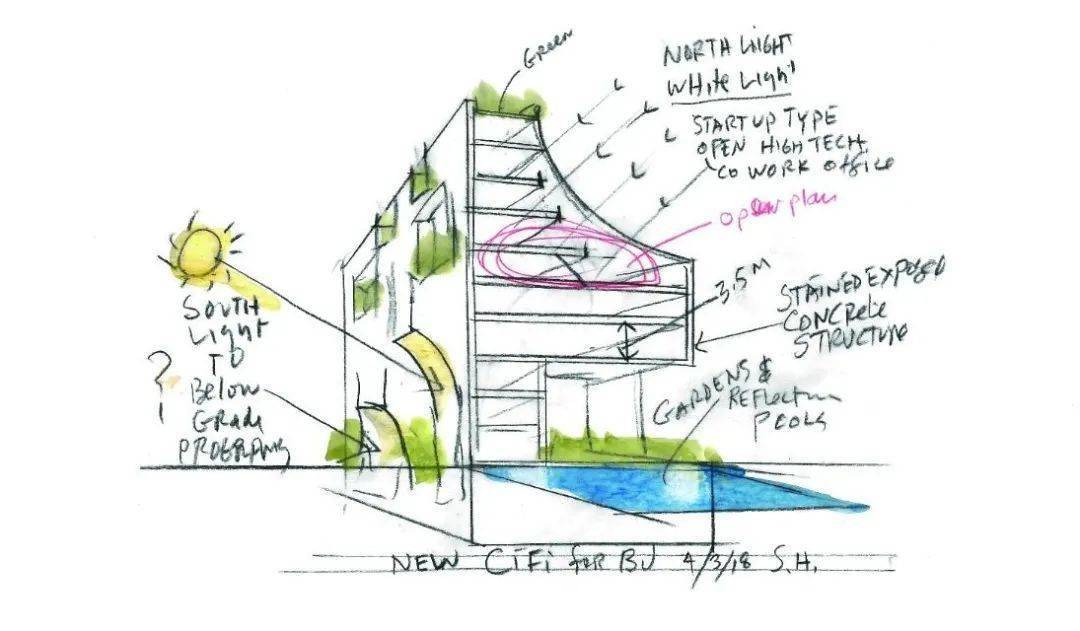 Green
NORTH LIGHT
WHite Light
START UP TYPE
OPEN HIGH TECH
CO WORK office
open plan
3.5 M
STAINED EXPOSED
CONCRete
STRUCTURE
SOUTH
Light
TO
Below
GRade
?
GARDENS &
REFLECTION
POOLS
NEW CiFi for BJ 4/3/18 S.H.